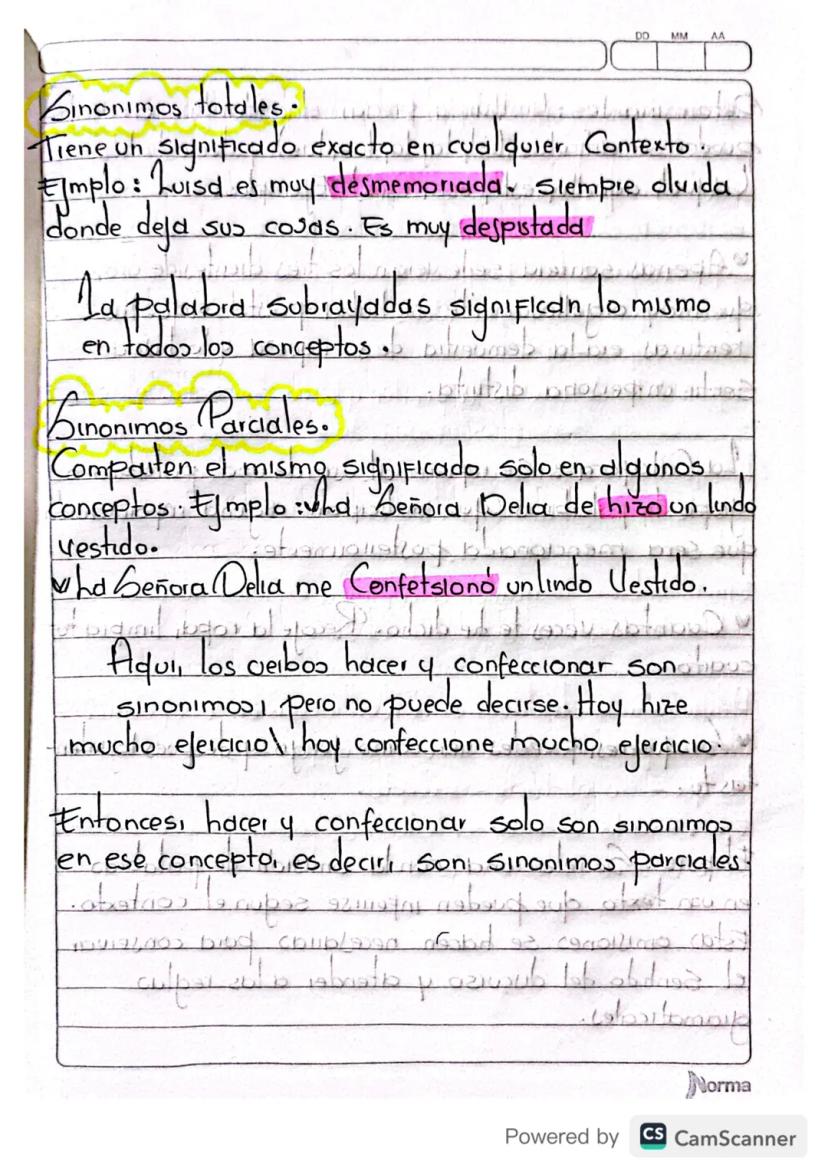 DD MM AA
Sinonimos totales.
Tiene un significado exacto en cualquier Contexto.
Ejmplo: Luisa es muy desmemoriada. siempre olvida
donde deja sus cosas. Es muy despistada
La palabra subrayadas significan lo mismo
en todos los conceptos.
Sinonimos Parciales.
Comparten el mismo significado solo en algunos
conceptos. Ejmplo: la Señora Delia de hizo un lindo
vestido.
la Señora Delia me Confetsionó un lindo Vestido.
Aqui, los verbos hacer y confeccionar son
sinonimos, pero no puede decirse. Hoy hize
mucho ejercicio\ hoy confeccione mucho ejercicio.
Entonces, hacer y confeccionar solo son sinonimos
en ese concepto, es decir, son sinonimos parciales.
Norma
Powered by CS CamScanner